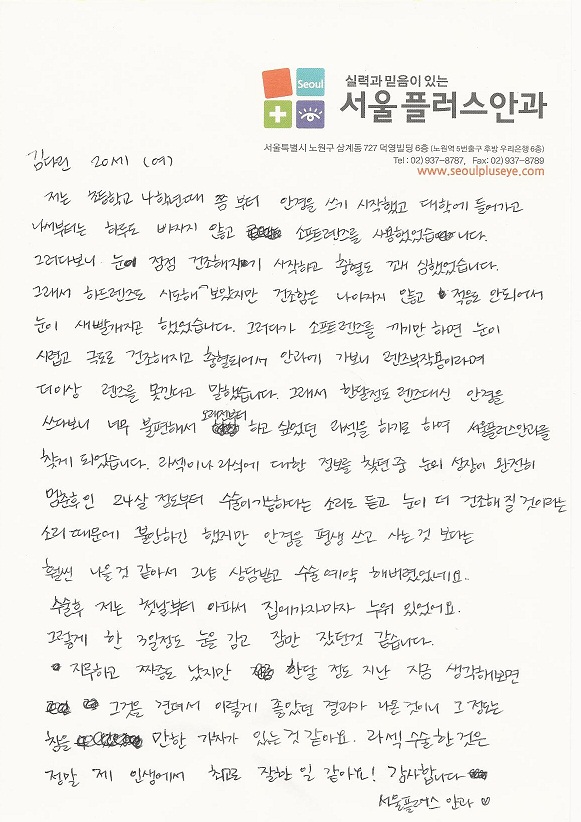 Seoul
실력과 믿음이 있는
서울플러스안과
서울특별시 노원구 상계동 727 덕영빌딩 6층 (노원역 5번출구 후방 우리은행 6층)
Tel : 02) 937-8787, Fax: 02) 937-8789
www.seoulpluseye.com
김다원 20세 (여)
저는 초등학교 4학년때 쯤 부터 안경을 쓰기 시작했고 대학에 들어가고
나서부터는 하루도 빠지지 않고 소프트렌즈를 사용했었습니다.
그러다보니 눈이 점점 건조해지기 시작하고 충혈도 꽤 심했었습니다.
그래서 하드렌즈도 시도해 보았지만 건조함은 나아지지 않고 적응도 안되어서
눈이 새빨개지곤 했었습니다. 그러다가 소프트렌즈를 끼기만 하면 눈이
시렵고 극도로 건조해지고 충혈되어서 안과에 가보니 렌즈부작용이라며
더이상 렌즈를 못낀다고 말했습니다. 그래서 한달정도 렌즈대신 안경을
쓰다보니 너무 불편해서 오래전부터 하고 싶었던 라섹을 하기로 하여 서울플러스안과를
찾게 되었습니다. 라섹이나 라식에 대한 정보를 찾던 중 눈의 성장이 완전히
멈춘후인 24살 정도부터 수술이 가능하다는 소리도 듣고 눈이 더 건조해 질 것이라는
소리 때문에 불안하긴 했지만 안경을 평생 쓰고 사는 것 보다는
훨씬 나을것 같아서 그냥 상담받고 수술 예약 해버렸었네요..
수술후 저는 첫날부터 아파서 집에가자마자 누워 있었어요.
그렇게 한 3일정도 눈을 감고 잠만 잤던것 같습니다.
지루하고 짜증도 났지만 한달 정도 지난 지금 생각해보면
그것을 견뎌서 이렇게 좋았던 결과가 나온 것이니 그 정도는
참을 만한 가치가 있는 것 같아요. 라섹 수술 한 것은
정말 제 인생에서 최고로 잘한 일 같아요! 감사합니다
서울플러스 안과 ♡